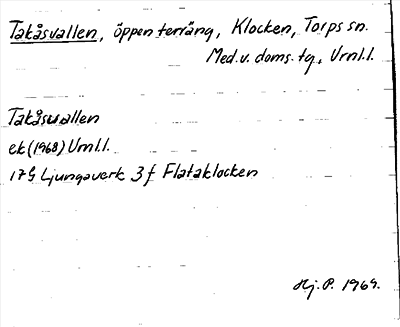 Takåsvallen, öppen terräng, Klocken, Torps sn.
Med.v. doms.tg., Vrnl.l.
Takåsvallen
ek (1968) Vrnl.l.
17G Ljungaverk 3f Flataklocken
Hj. P. 1969.